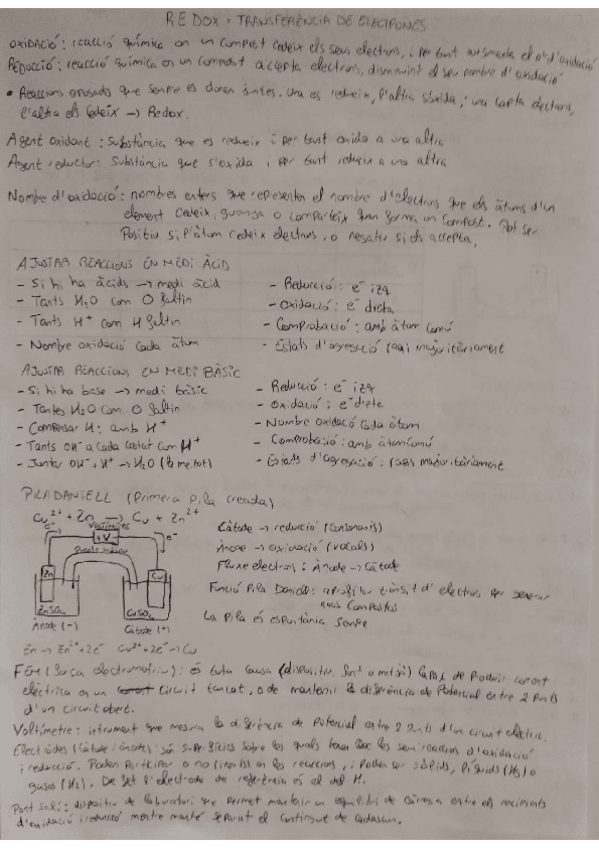 REDOX = TRANSFERÈNCIA DE ELECTRONES
OXIDACIÓ: reacció química en un compost cedeix els seus electrons, i per tant augmenta el nº d'oxidació
REDUCCIÓ: reacció química en un compost accepta electrons, disminuint el seu nombre d'oxidació
• Reaccions oposades que sempre es donen juntes. Una es redueix, l'altra s'oxida, una capta electrons,
l'altra els cedeix → Redox.
Agent oxidant: Substància que es redueix i per tant oxida a una altra
Agent reductor: Substància que s'oxida i per tant redueix a una altra
Nombre d'oxidació: nombres enters que representen el nombre d'electrons que els àtoms d'un
element cedeix, guanya o comparteix quan forma un compost. Pot ser
Positiu si l'àtom cedeix electrons, o negatiu si els accepta,
AJUSTAR REACCIONS EN MEDI ÀCID
- Si hi ha àcids → medi àcid
- Tants H2O com O faltin
- Tants H+ com H faltin
- Nombre oxidació cada àtom
- Reducció: e- izq
- Oxidació: e- dreta
- Comprobació: amb àtom comú
- Estats d'agregació (aq) majoritàriament
AJUSTAR REACCIONS EN MEDI BÀSIC
- Si hi ha base → medi bàsic
- Tantes H2O com O faltin
- Compensar H: amb H+
- Tants OH- a cada costat com H+
- Juntar OH- + H+ → H2O (lo me tot)
- Reducció: e- izq
- Oxidació: e- dreta
- Nombre oxidació cada àtom
- Comprobació: amb àtom comú
- Estats d'agregació: (aq) majoritàriament
PILA DANIELL (Primera pila creada)
Cu2+ + Zn → Cu + Zn2+
VOLTÍMETRE
e-
V
e-
Zn
Cu
ZnSO4
CuSO4
Ànode (-)
Càtode (+)
Zn → Zn2+ + 2e- Cu2+ + 2e- → Cu
Càtode → reducció (consonants)
Ànode → oxidació (vocals)
Fluxe electrons: Ànode → Càtode
Funció Pila Daniell: aprofitar trànsit d'electrons per generar
nous compostos
La pila és espontània sempre
FEM (força electromotriu): és tota causa (dispositiu, font o mitjà) capaç de produir corrent
elèctrica en un circuit tancat, o de mantenir la diferència de potencial entre 2 punts
d'un circuit obert.
Voltímetre: intrument que mesura la diferència de potencial entre 2 punts d'un circuit elèctric.
Electrodes (càtode i ànode): són superfícies sobre les quals tenen lloc les semireaccions d'oxidació
i reducció. Poden participar o no (inerts) en les reaccions, i poden ser sòlids, líquids (Hg) o
gasos (H2). De fet l'electrode de referència és el del H.
Pont Salí: dispositiu de laboratori que permet mantenir un equilibri de càrrega entre els recipients
d'oxidació i reducció mentre manté separat el contingut de cadascun.